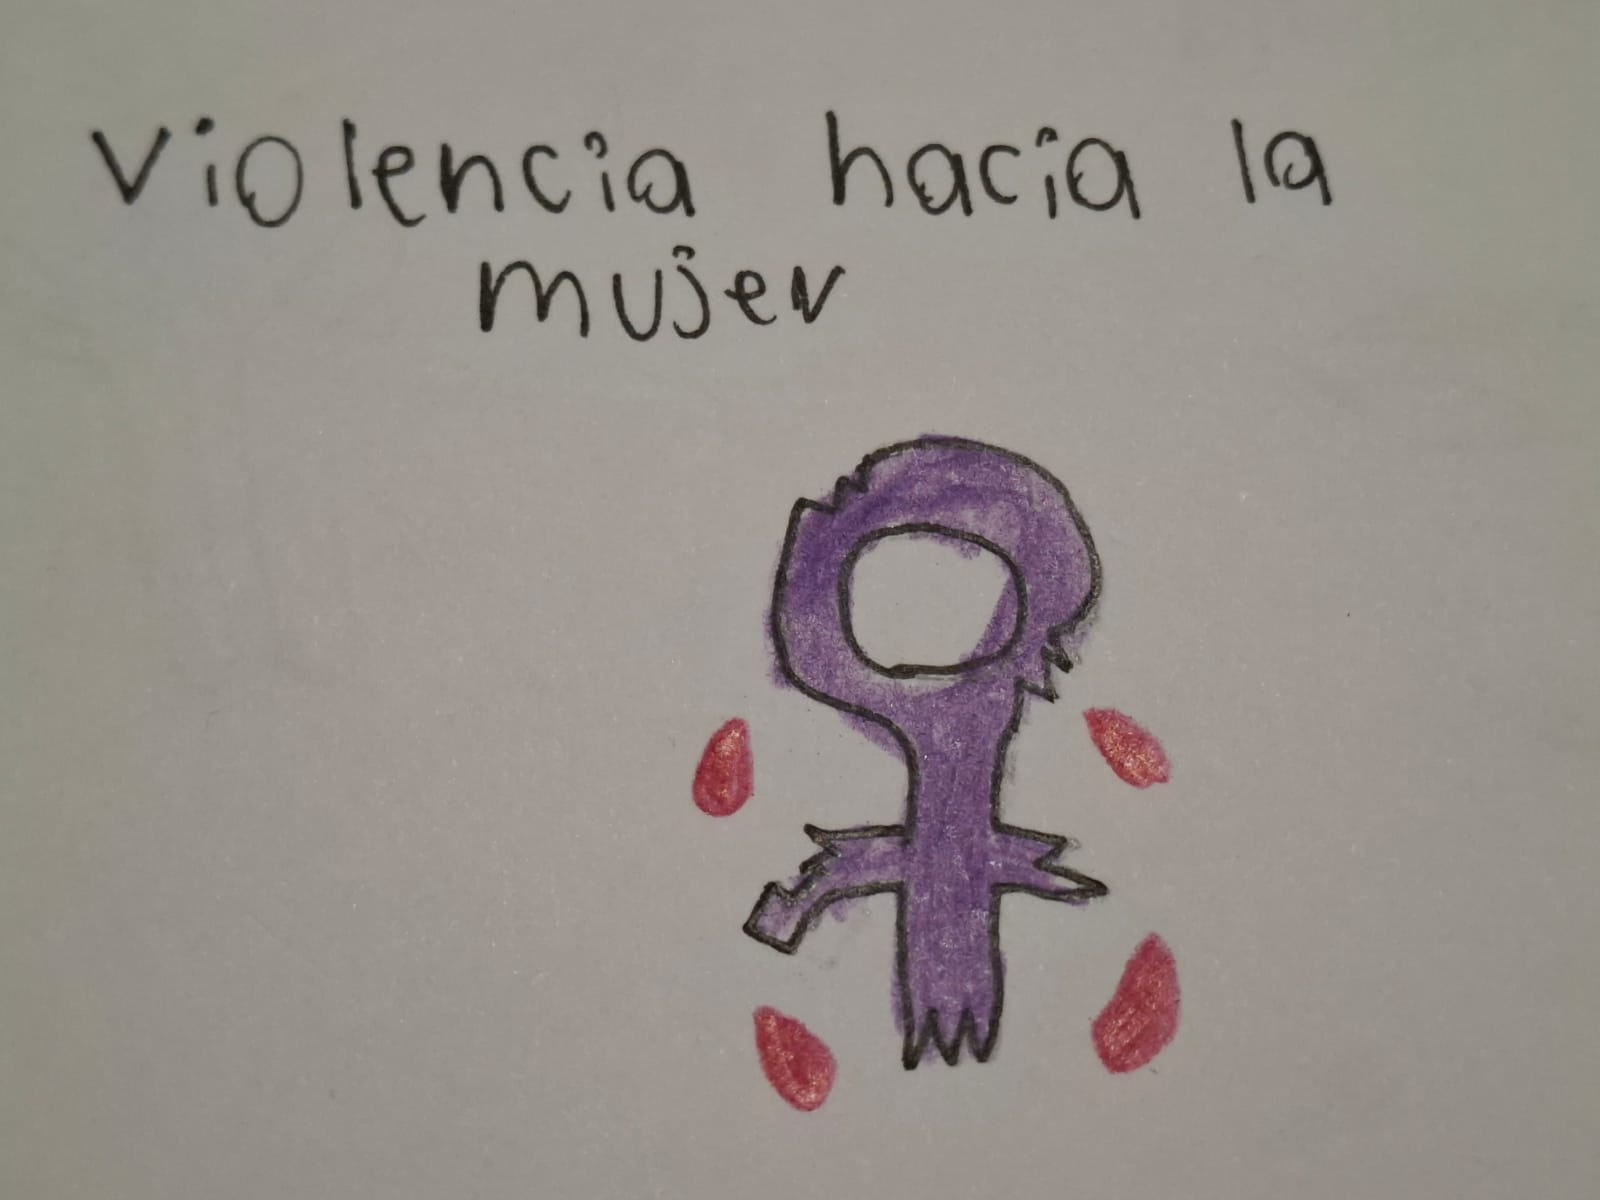 violencia hacia la
mujer